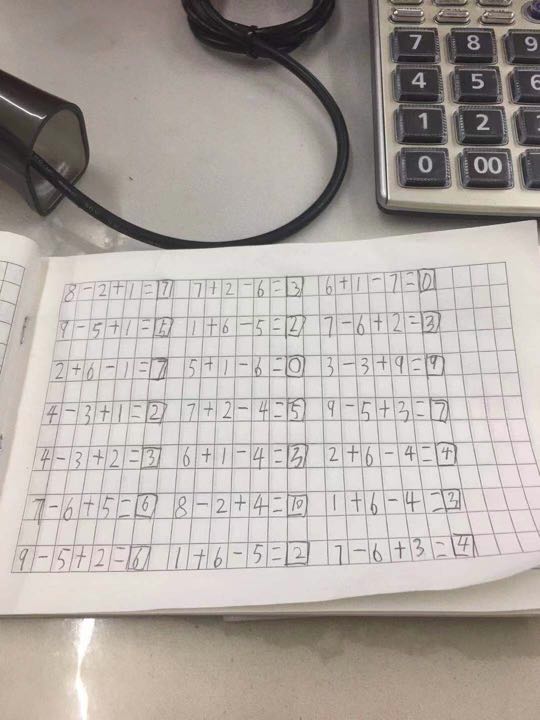 7 8 9
4 5 6
1 2
0 00
8-2+1=7 7+2-6=3 6+1-7=0
9-5+1=5 1+6-5=2 7-6+2=3
2+6-1=7 5+1-6=0 3-3+9=9
4-3+1=2 7+2-4=5 9-5+3=7
4-3+2=3 6+1-4=3 2+6-4=4
7-6+5=6 8-2+4=10 1+6-4=3
9-5+2=6 1+6-5=2 7-6+3=4